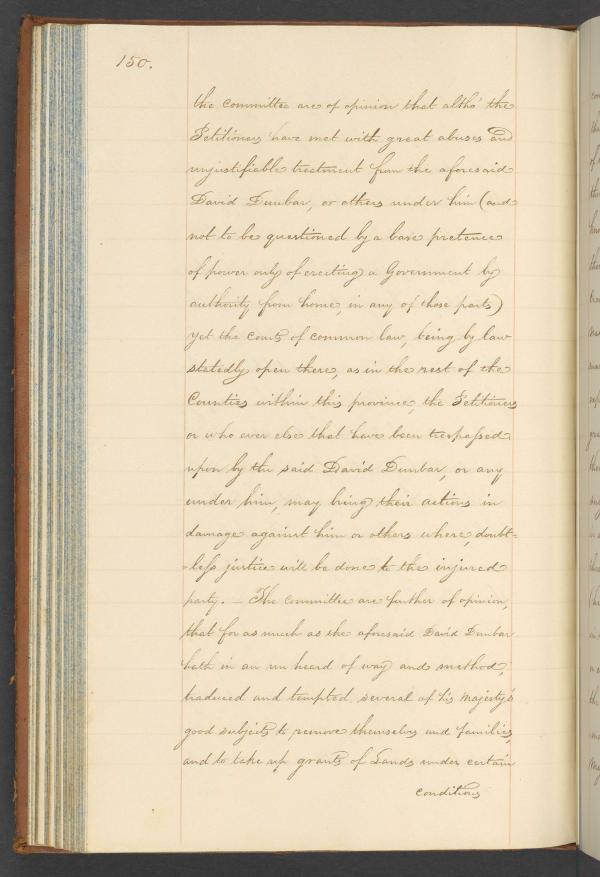 150.
the committee are of opinion that altho' the
Petitioners have met with great abuses and
unjustifiable treatment from the aforesaid
David Dunbar, or others under him (and
not to be questioned by a bare pretence
of power only of erecting a Government by
authority from home, in any of those parts)
yet the courts of common law, being by law
statedly open there, as in the rest of the
Counties within this province, the Petitioners
or who ever else that have been trespassed
upon by the said David Dunbar, or any
under him, may bring their actions in
damage against him or others where, doubt=
=less justice will be done to the injured
party. _ The committee are further of opinion,
that for as much as the aforesaid David Dunbar
hath in an un heard of way and method,
traduced and tempted several of his majesty's
good subjects to remove themselves and families,
and to take up grants of Lands under certain
conditions